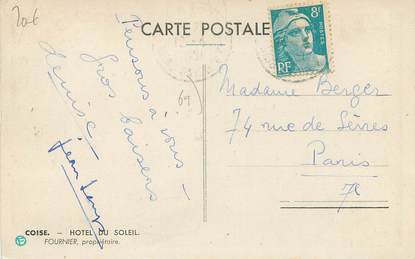 206
CARTE POSTALE
8F
POSTES
RF
69
Pensons à vous —
Gros baisers
Denise
Madame Berger
74 rue de Sèvres
Paris
7e
COISE. — HOTEL DU SOLEIL.
FOURNIER, propriétaire.